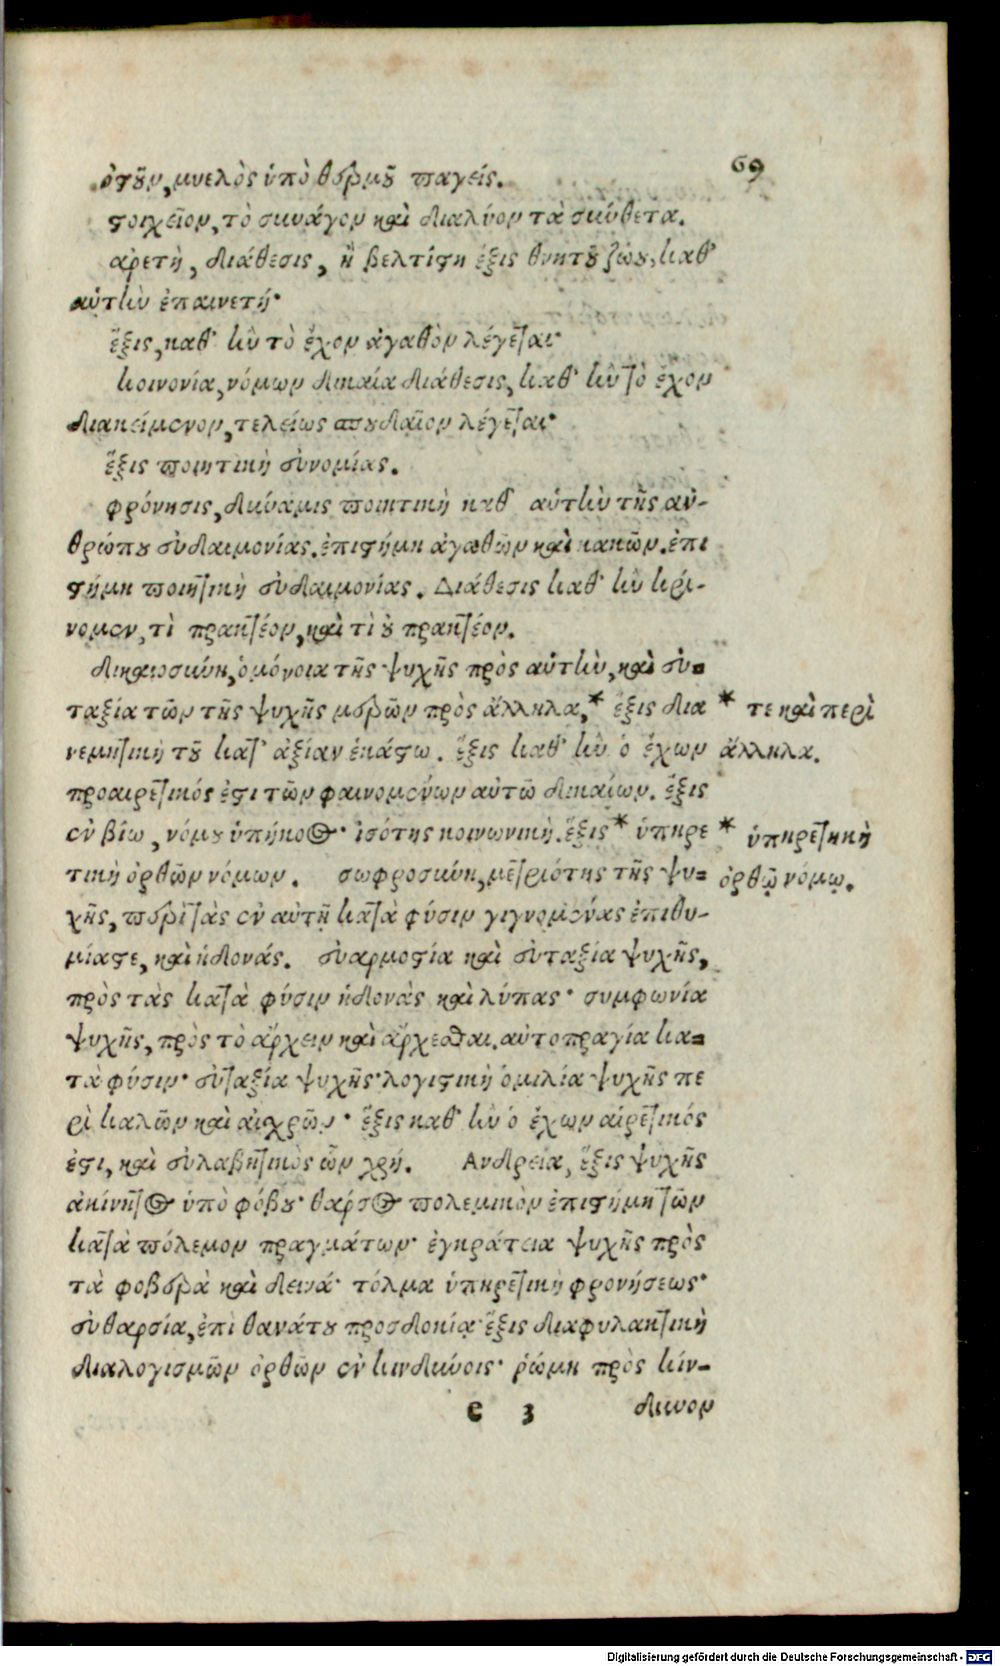 69
ὀστοῦν, μυελὸς ὑπὸ θερμοῦ παγείς.
στοιχεῖον, τὸ συνάγον καὶ διαλύον τὰ σύνθετα.
ἀρετὴ, διάθεσις, ἡ βελτίστη ἕξις θνητοῦ ζώου, καθ'
αὑτὴν ἐπαινετή·
ἕξις, καθ' ἣν τὸ ἔχον ἀγαθὸν λέγεται·
κοινονία, νόμων δικαία διάθεσις, καθ' ἣν τὸ ἔχον
διακείμενον, τελείως σπουδαῖον λέγεται·
ἕξις ποιητικὴ εὐνομίας.
φρόνησις, δύναμις ποιητικὴ καθ' αὑτὴν τῆς ἀν-
θρώπου εὐδαιμονίας. ἐπιστήμη ἀγαθῶν καὶ κακῶν. ἐπι
στήμη ποιητικὴ εὐδαιμονίας. Διάθεσις καθ' ἣν κρί-
νομεν, τὶ πρακτέον, καὶ τὶ οὐ πρακτέον.
δικαιοσύνη, ὁμόνοια τῆς ψυχῆς πρὸς αὑτὴν, καὶ εὐ-
ταξία τῶν τῆς ψυχῆς μερῶν πρὸς ἄλληλα, * ἕξις δια
* τε καὶ περὶ
νεμητικὴ τοῦ κατ' ἀξίαν ἑκάστω. ἕξις καθ' ἣν ὁ ἔχων
ἄλληλα.
προαιρετικός ἐστι τῶν φαινομένων αὐτῶ δικαίων. ἕξις
ἐν βίω, νόμου ὑπήκοος· ἰσότης κοινωνικὴ. ἕξις * ὑπηρε
* ὑπηρετηκὴ
τικὴ ὀρθῶν νόμων. σωφροσύνη, μετριότης τῆς ψυ-
ὀρθῷ νόμῳ.
χῆς, περὶ τὰς ἐν αὐτῇ κατὰ φύσιν γιγνομένας ἐπιθυ-
μίαςτε, καὶ ἡδονάς. εὐαρμοστία καὶ εὐταξία ψυχῆς,
πρὸς τὰς κατὰ φύσιν ἡδονὰς καὶ λύπας· συμφωνία
ψυχῆς, πρὸς τὸ ἄρχειν καὶ ἄρχεσθαι. αὐτοπραγία κα-
τὰ φύσιν· εὐταξία ψυχῆς· λογιστικὴ ὁμιλία ψυχῆς πε
ρὶ καλῶν καὶ αἰσχρῶν· ἕξις καθ' ἣν ὁ ἔχων αἱρετικός
ἐστι, καὶ εὐλαβητικὸς ὧν χρή. Ανδρεία, ἕξις ψυχῆς
ἀκίνητος ὑπὸ φόβου· θάρσος πολεμικὸν ἐπιστήμη τῶν
κατὰ πόλεμον πραγμάτων· ἐγκράτεια ψυχῆς πρὸς
τὰ φοβερὰ καὶ δεινά· τόλμα ὑπηρετικὴ φρονήσεως·
εὐθαρσία, ἐπὶ θανάτου προσδοκίᾳ· ἕξις διαφυλακτικὴ
διαλογισμῶν ὀρθῶν ἐν κινδύνοις· ῥώμη πρὸς κίν-
e 3 δυνον
Digitalisierung gefördert durch die Deutsche Forschungsgemeinschaft - DFG